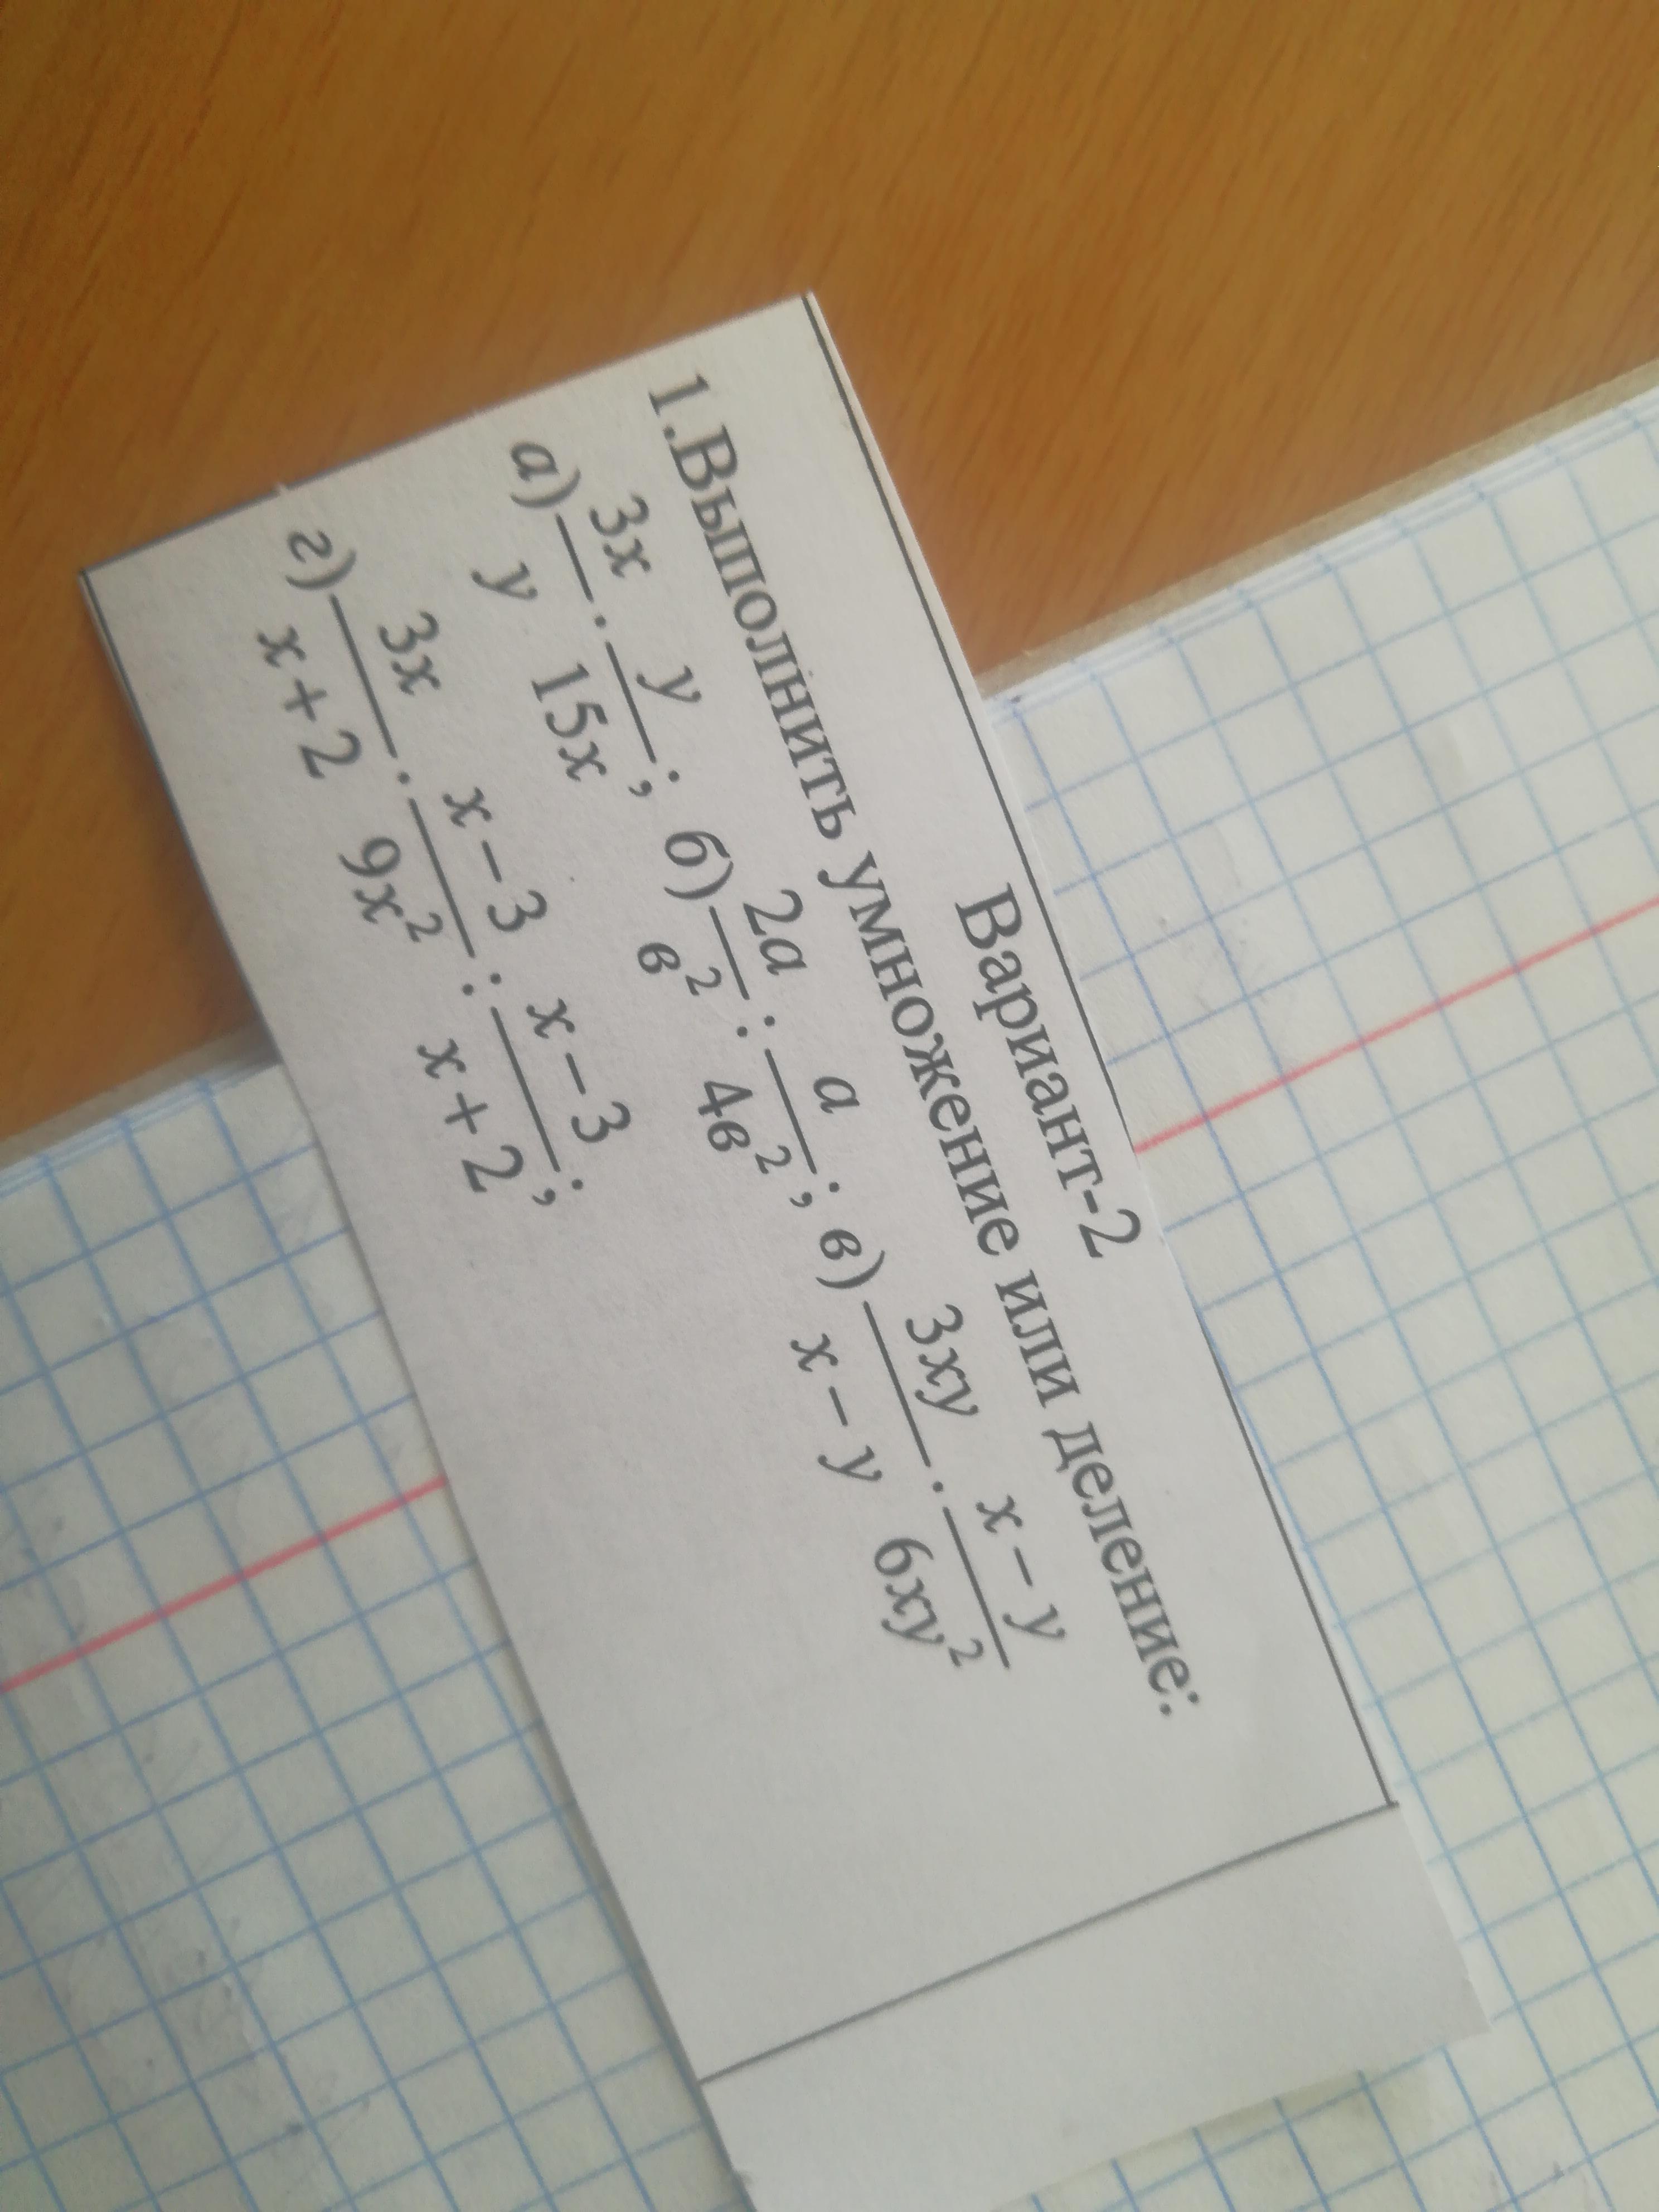 Вариант-2
1.Выполнить умножение или деление:
а) 3x/y · y/15x; б) 2a/в² : a/4в²; в) 3xy/(x – y) · (x – y)/6xy²
г) 3x/(x + 2) · (x – 3)/9x² : (x – 3)/(x + 2);